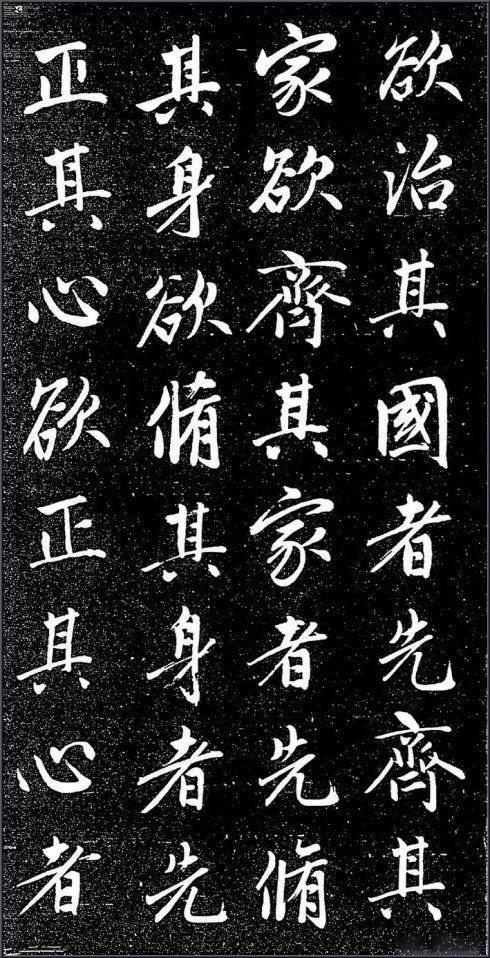 欲治其國者先齊其
家欲齊其家者先脩
其身欲脩其身者先
正其心欲正其心者